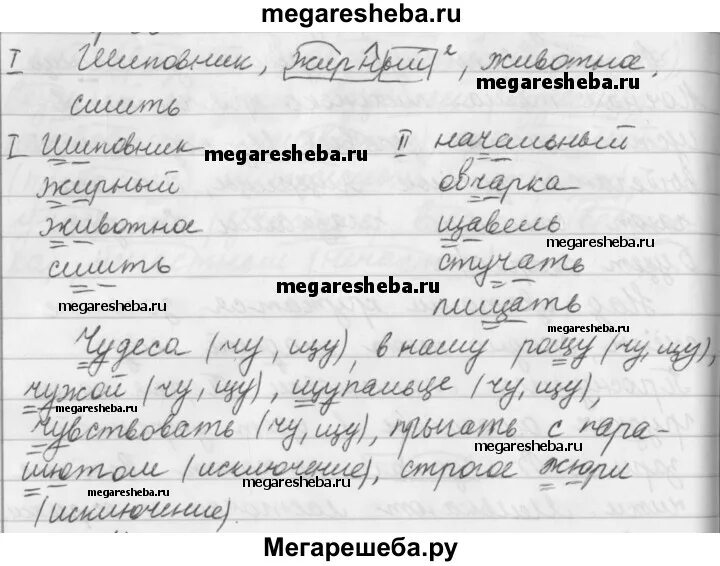 megaresheba.ru
I Шиповник, жирный², животное,
megaresheba.ru
сшить
I Шиповник II начальный
megaresheba.ru
жирный овчарка
животное щавель
megaresheba.ru
сшить стучать
megaresheba.ru
megaresheba.ru
пищать
Чудеса (чу, щу), в нашу рощу (чу, щу),
megaresheba.ru
чужой (чу, щу), щупальце (чу, щу),
megaresheba.ru
чувствовать (чу, щу), прыгать с пара-
megaresheba.ru
шютом (исключение), строгое жюри
megaresheba.ru
megaresheba.ru
(исключение).
Мегарешеба.ру